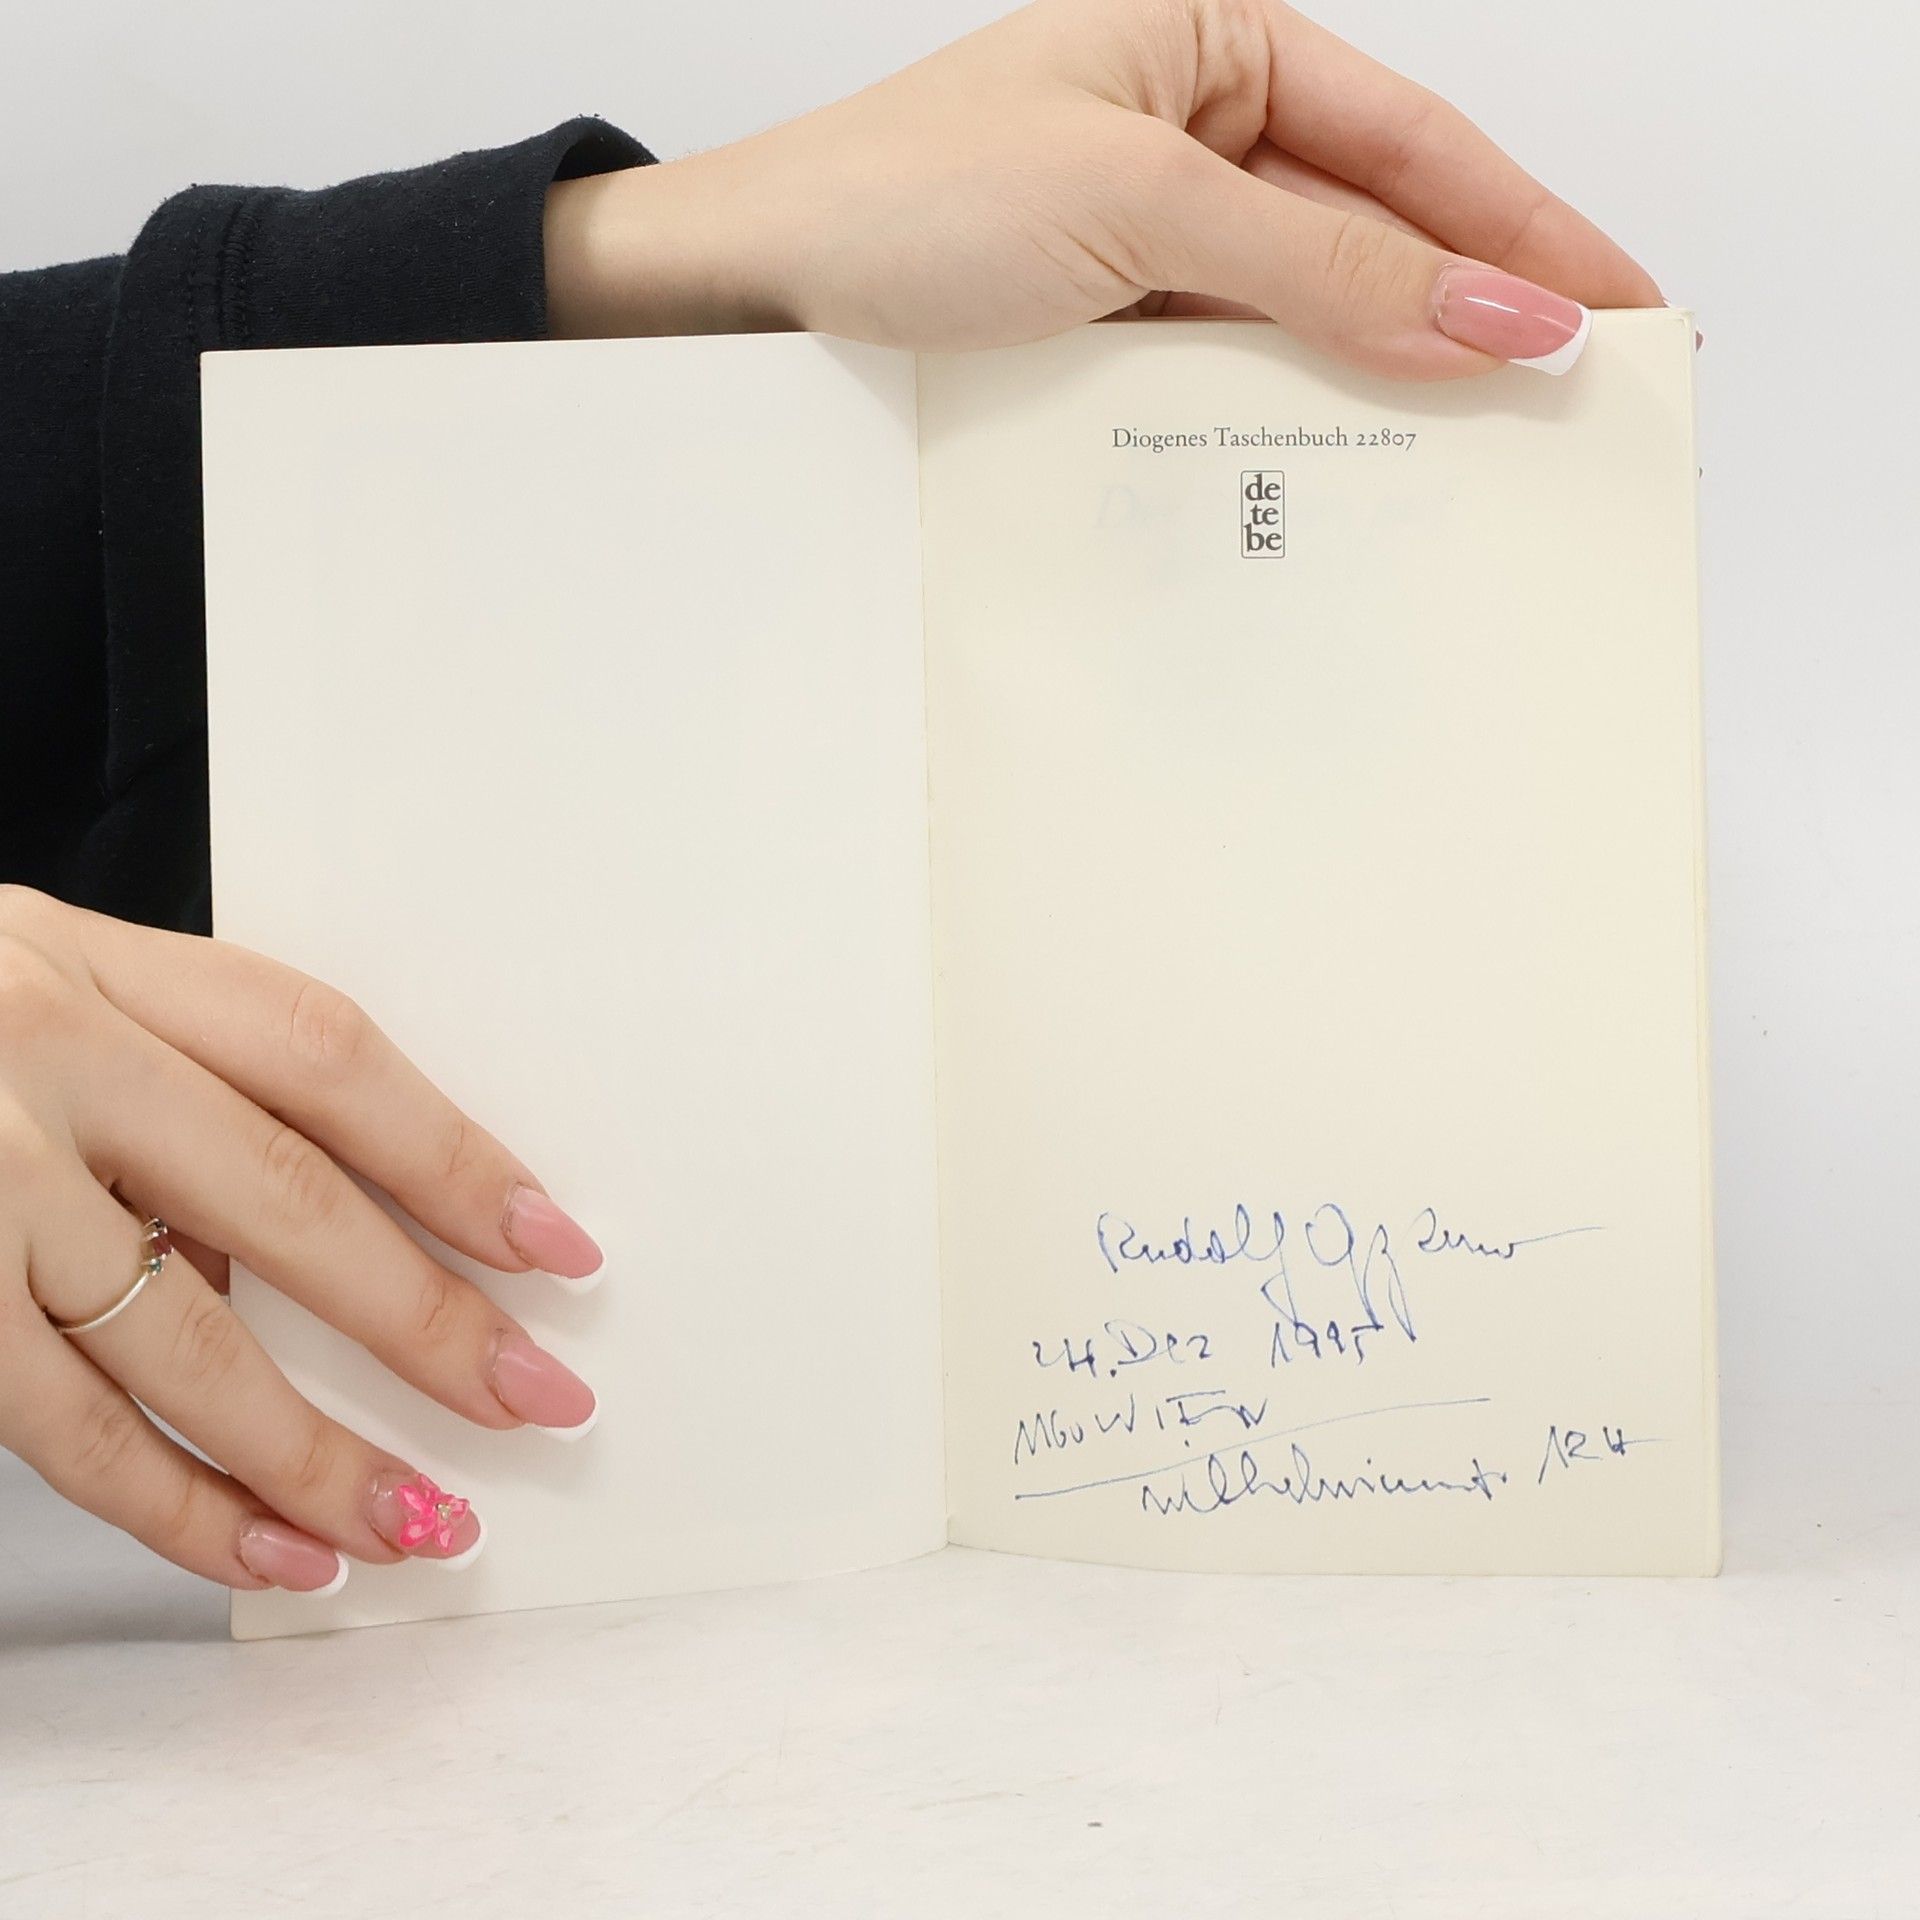 Diogenes Taschenbuch 22807
de
te
be
Rudolf
24. Dez 1995
1160 WIEN
124